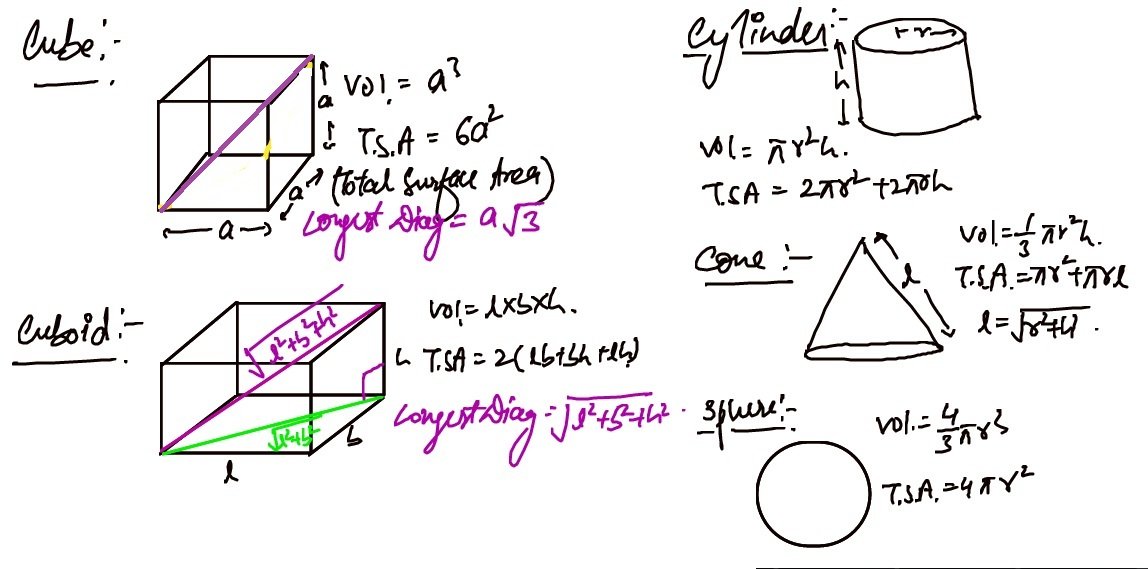 Cube:-
a
a
a
Vol. = a³
T.S.A = 6a²
(Total Surface Area)
Longest Diag = a√3
Cuboid:-
√l²+b²+h²
√l²+b²
h
b
l
Vol. = l×b×h.
T.S.A = 2(lb+bh+lh)
Longest Diag = √l²+b²+h².
Cylinder:-
r
h
Vol = πr²h.
T.S.A = 2πr²+2πrh
Cone:-
l
Vol. = 1/3 πr²h.
T.S.A. = πr²+πrl
l = √r²+h².
Sphere:-
Vol. = 4/3 πr3
T.S.A. = 4πr²